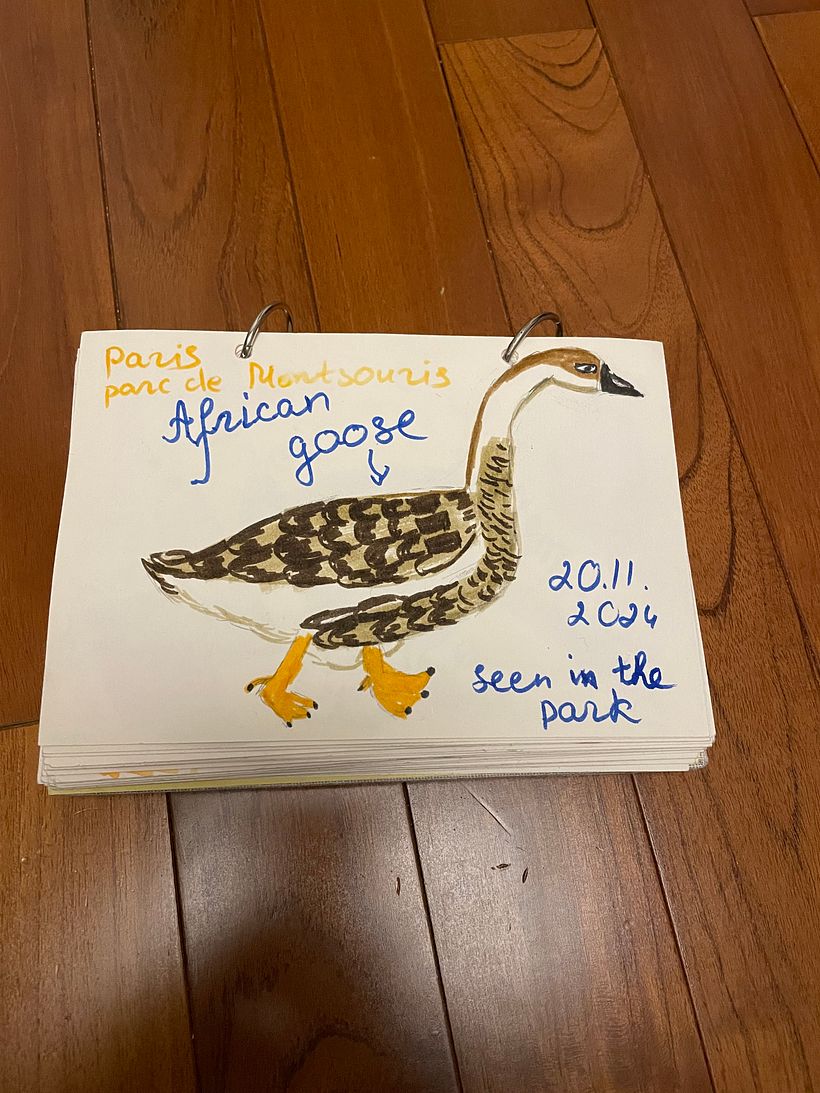 Paris
parc de Montsouris
African
goose
20.11.
2024
seen in the
park